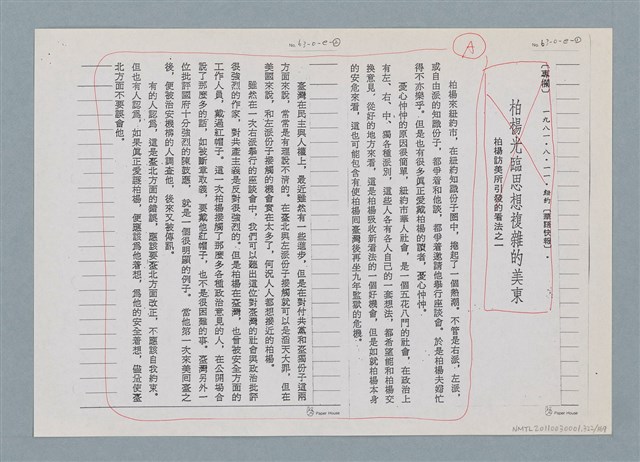 no. 63-0-e-①
no. 63-0-e-②
A
〔專欄〕一九八一．八．一一．紐約〔華語快報〕．
柏楊光臨思想複雜的美東
柏楊訪美所引發的看法之一
柏楊來紐約市，在紐約知識份子圈中，捲起了一個熱潮。不管是右派，左派，
或自由派的知識份子，都爭着和他談，都爭着邀請他舉行座談會。於是柏楊夫婦忙
得不亦樂乎。但是也有很多眞正愛戴柏楊的讀者，憂心忡忡。
憂心忡忡的原因很簡單，紐約市華人社會，是一個五花八門的社會，在政治上
有左、右、中、獨各種派別，這些人各有各人自己的一套想法，都希望能和柏楊交
換意見，從好的地方來看，這是柏楊吸收新看法的一個好機會，但是如就柏楊本身
的安危來看，這也可能包含有使柏楊回臺灣後再坐九年監獄的危機。
臺灣在民主與人權上，最近雖然有一些進步，但是在對付共黨和臺獨份子這兩
方面來說，常常是有理說不清的。在臺北與左派份子接觸就可以是滔天大罪，但在
美國來說，和左派份子接觸的機會實在太多了，何況人人都想接近的柏楊。
雖然在一次右派舉行的座談會中，我們可以聽出這位對臺灣的社會與政治批評
很強烈的作家，對共產主義是反對很強烈的。但是柏楊在臺灣，也曾被安全方面的
工作人員，戴過紅帽子，這一次柏楊接觸了那麼多各種政治意見的人，在公開場合
說了那麼多的話，如被斷章取義，要戴他紅帽子，也不是很困難的事。臺灣另外一
位批評國府十分強烈的陳鼓應，就是一個很明顯的例子。當他第一次來美回臺之
後，便被治安機構的人調查他，後來又被傳訊。
有的人認爲，這是臺北方面的錯誤，應該要臺北方面改正，不應該自我約束。
但也有人認爲，如果眞正愛護柏楊，便應該爲他着想，爲他的安全着想，儘量使臺
北方面不要誤會他。
Paper House
Paper House
NMTL20110030001.323/169